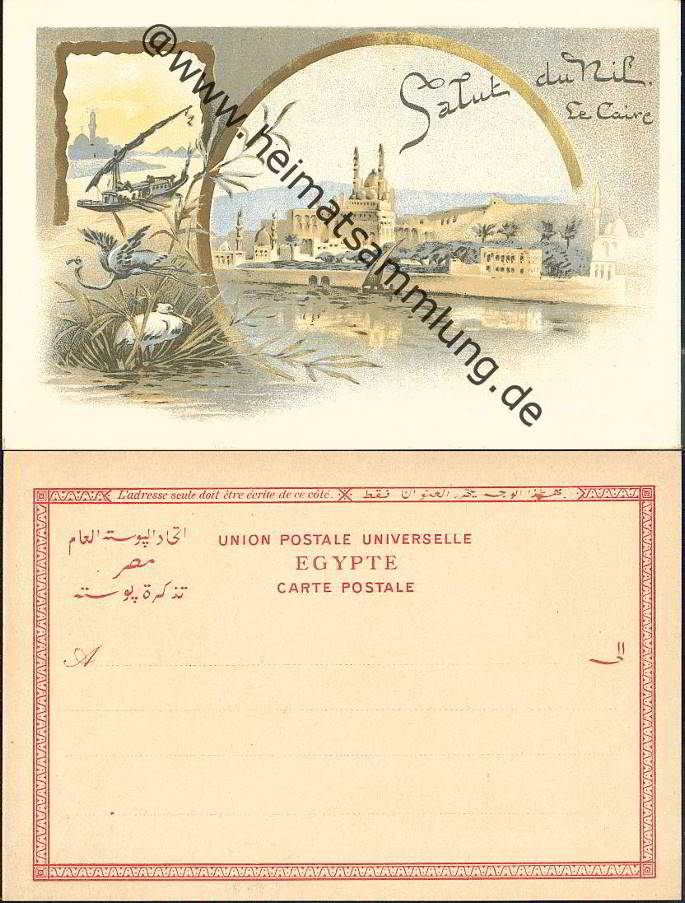 Salut du Nil.
Le Caire
@www.heimatsammlung.de
L'adresse seule doit être écrite de ce côté.
بهذا الوجه يحرر العنوان فقط
اتحاد البوسته العام
مصر
تذكرة بوسته
UNION POSTALE UNIVERSELLE
EGYPTE
CARTE POSTALE
A
الى